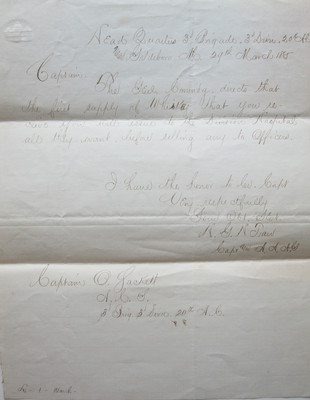 Head Quarters 3d Brigade, 3d Divn, 20th A.C.
Goldsboro N.C. 29th March 1865
Captain,
The Genl. Comdg directs that
the first supply of Whisky that you re-
ceive you will issue to the Division Hospital
all they want, before selling any to Officers.
I have the honor to be Capt
Very respectfully
Your Obt. Svt
A. G. K
Captn & A A A G
Captain O. Gackett
A. C. S.
3d Brig 3d Divn. 20th A.C.